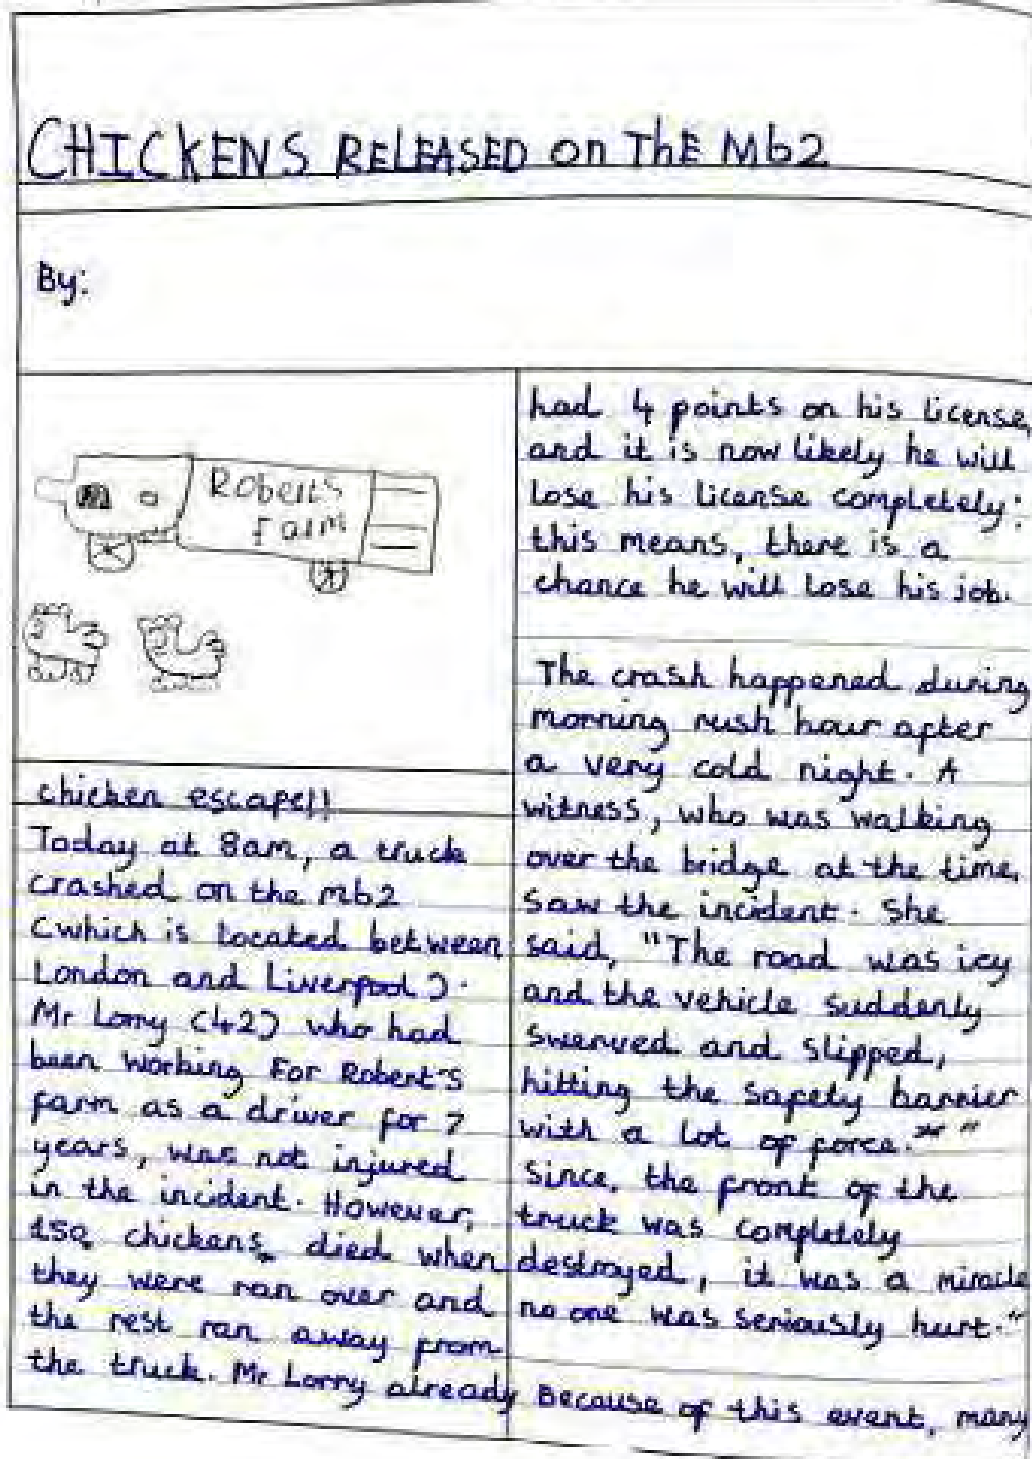 CHICKENS RELEASED on ThE M62
By:
Robert's
farm
chicken escape!!
Today at 8am, a truck
crashed on the M62
(which is located between
London and Liverpool).
Mr Lorry (42) who had
been working For Robert's
farm as a driver for 7
years, was not injured
in the incident. However,
150 chickens died when
they were ran over and
the rest ran away from
the truck. Mr Lorry already
had 4 points on his license,
and it is now likely he will
lose his license completely;
this means, there is a
chance he will lose his job.
The crash happened during
morning rush hour after
a very cold night. A
witness, who was walking
over the bridge at the time,
saw the incident. She
said, "The road was icy
and the vehicle suddenly
swerved and slipped,
hitting the safety barrier
with a lot of force."
Since, the front of the
truck was completely
destroyed, it was a miracle
no one was seriously hurt."
Because of this event, many